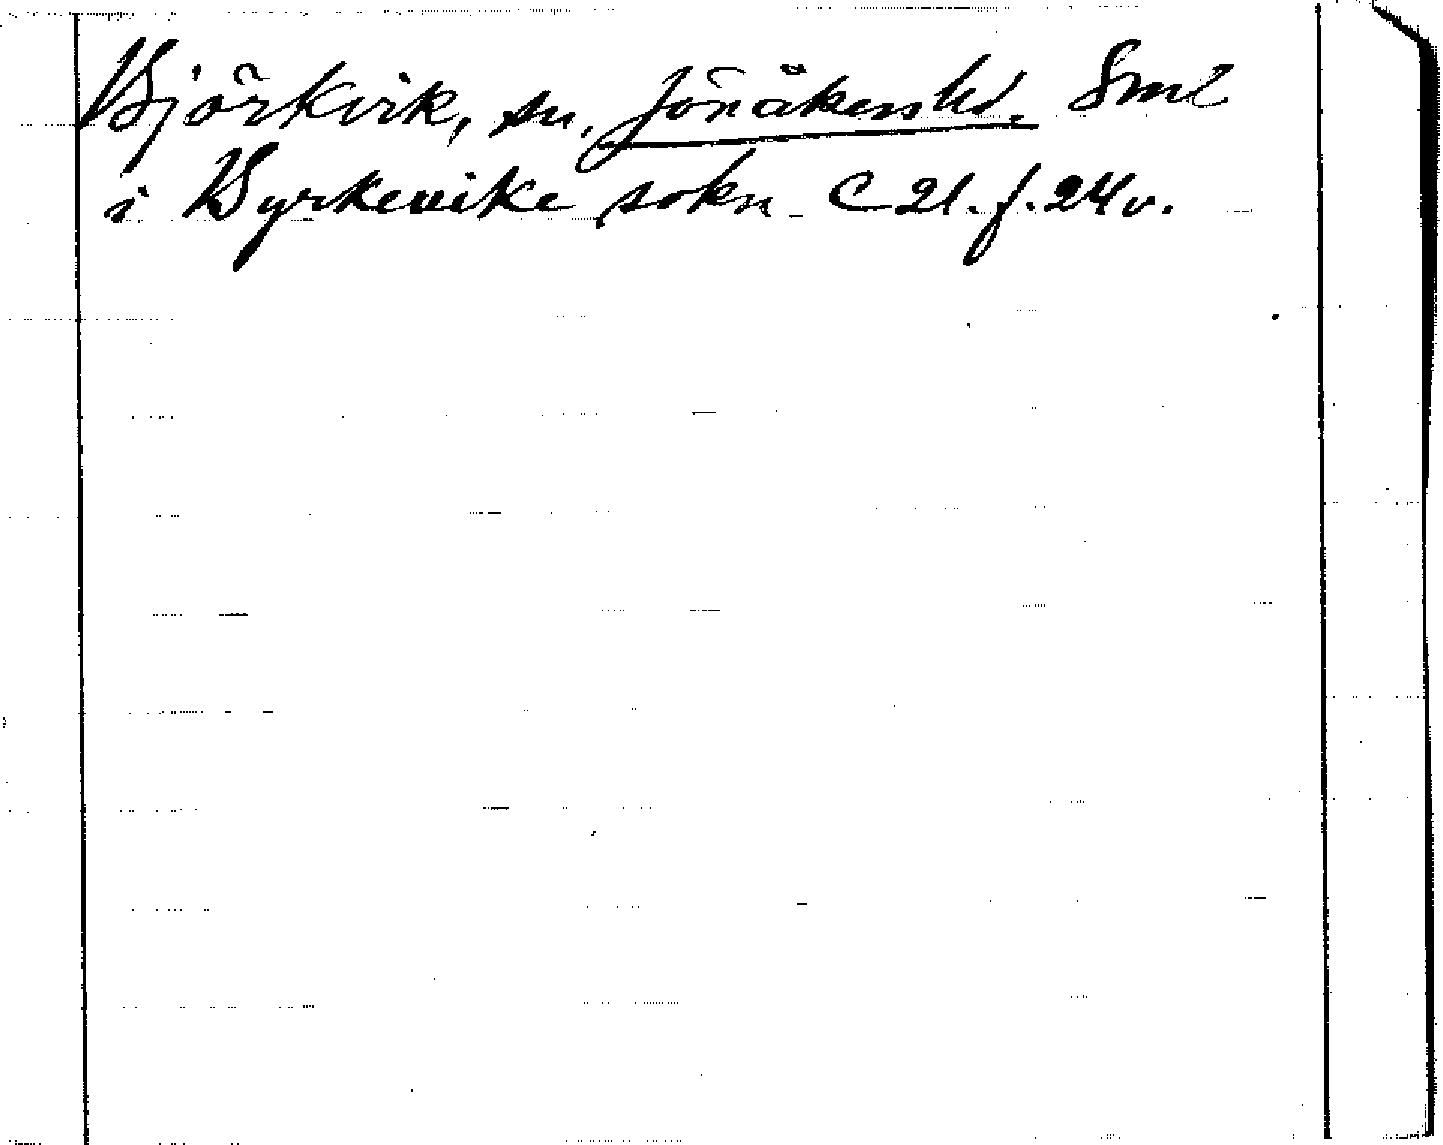 Björkvik, sn, Jönåkers hd. Sml
i Byrkeuike sokn C 21. f. 24 v.